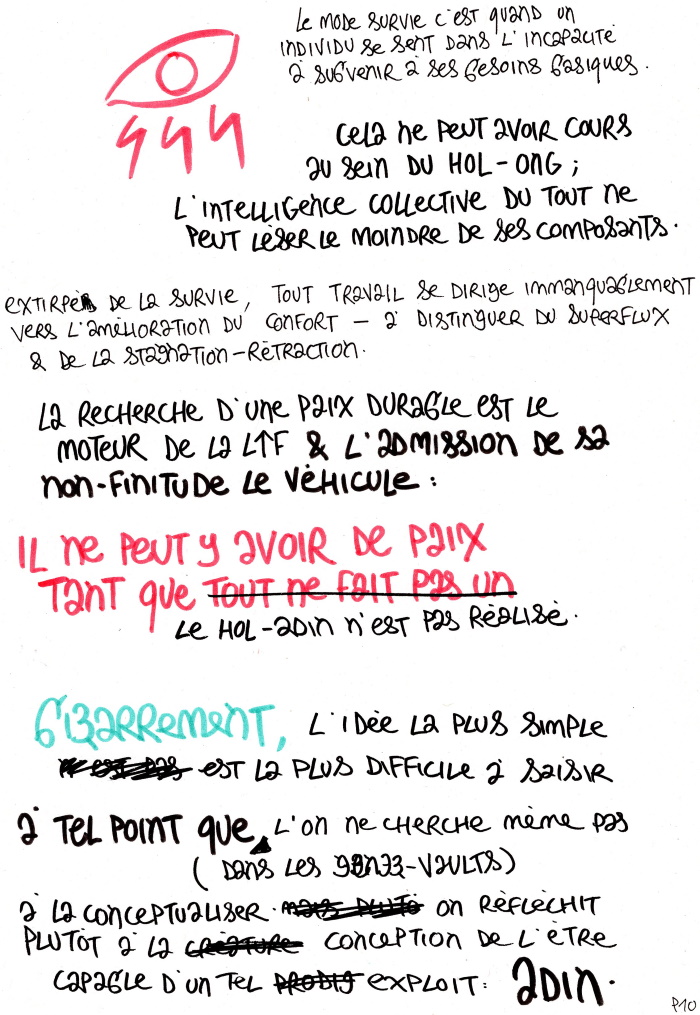 Le mode survie c'est quand un
individu se sent dans l'incapacité
à subvenir à ses besoins basiques.
Cela ne peut avoir cours
au sein du HOL-ONG ;
L'intelligence collective du tout ne
peut léser le moindre de ses composants.
Extirpés de la survie, tout travail se dirige immanquablement
vers l'amélioration du confort – à distinguer du superflux
& de la stagnation-rétraction.
La recherche d'une paix durable est le
moteur de la L↑F & l'admission de sa
non-finitude le véhicule :
Il ne peut y avoir de paix
tant que tout ne fait pas un
le HOL-ADIN n'est pas réalisé.
Bizarrement, l'idée la plus simple
n'est pas est la plus difficile à saisir
à tel point que l'on ne cherche même pas
(dans les -VAULTS)
à la conceptualiser. mais plutô on réfléchit
plutôt à la créature conception de l'être
capable d'un tel prodig exploit : ADIN.
P10